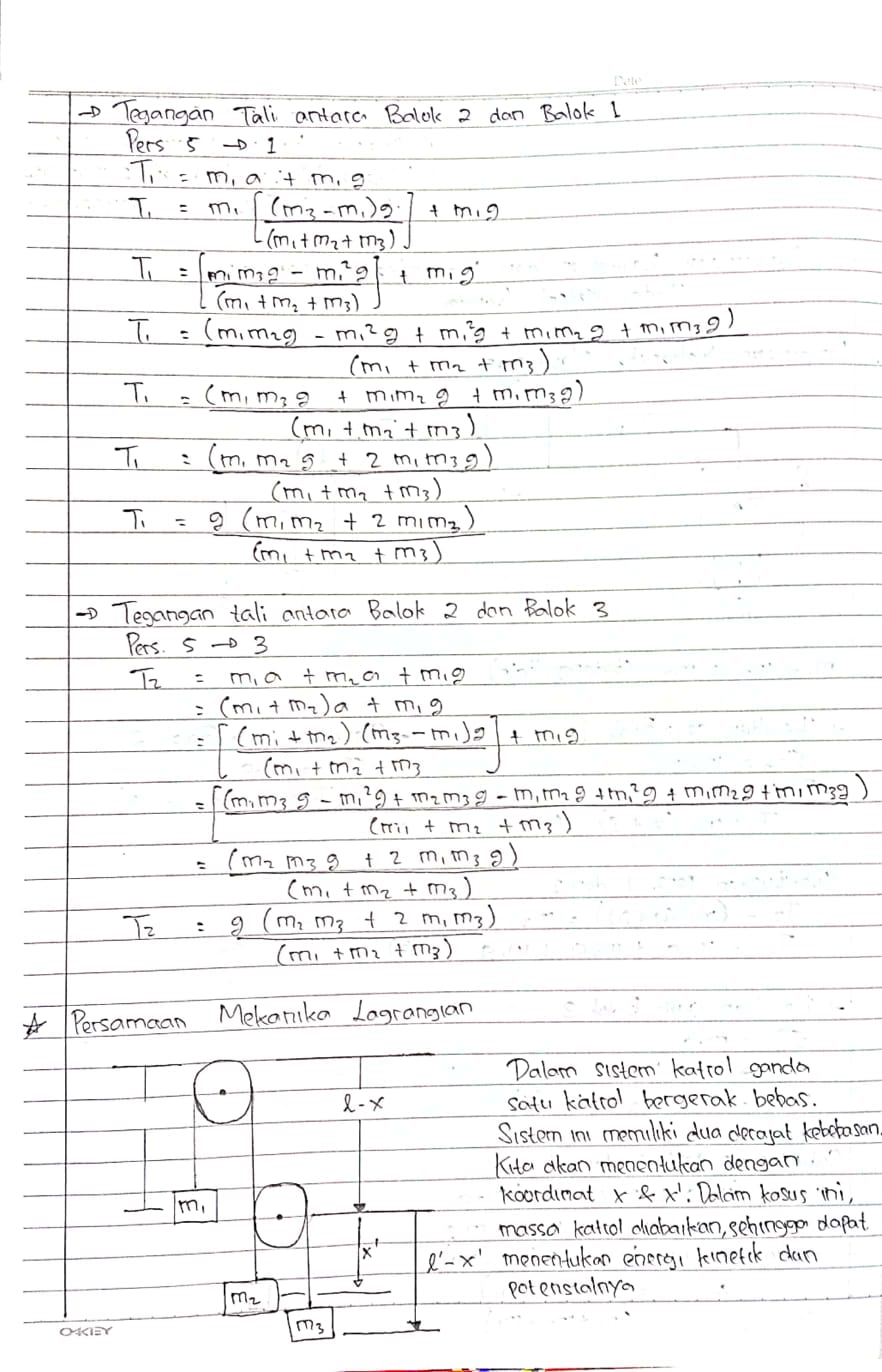 Date
→ Tegangan Tali antara Balok 2 dan Balok 1
Pers 5 → 1
T₁ = m₁ a + m₁ g
T₁ = m₁ [(m₃ - m₁)g / (m₁ + m₂ + m₃)] + m₁g
T₁ = [m₁m₃g - m₁²g / (m₁ + m₂ + m₃)] + m₁g
T₁ = (m₁m₂g - m₁²g + m₁²g + m₁m₂g + m₁m₃g) / (m₁ + m₂ + m₃)
T₁ = (m₁m₃g + m₁m₂g + m₁m₃g) / (m₁ + m₂ + m₃)
T₁ = (m₁m₂g + 2 m₁m₃g) / (m₁ + m₂ + m₃)
T₁ = g (m₁m₂ + 2 m₁m₃) / (m₁ + m₂ + m₃)
→ Tegangan tali antara Balok 2 dan Balok 3
Pers. 5 → 3
T₂ = m₁a + m₂a + m₁g
= (m₁ + m₂)a + m₁g
= [(m₁ + m₂)(m₃ - m₁)g / (m₁ + m₂ + m₃] + m₁g
= [(m₁m₃g - m₁²g + m₂m₃g - m₁m₂g + m₁²g + m₁m₂g + m₁m₃g) / (m₁ + m₂ + m₃)
= (m₂m₃g + 2 m₁m₃g) / (m₁ + m₂ + m₃)
T₂ = g (m₂m₃ + 2 m₁m₃) / (m₁ + m₂ + m₃)
☆ Persamaan Mekanika Lagrangian
l-x
m₁
x'
l'-x'
m₂
m₃
Dalam sistem katrol ganda
satu katrol bergerak bebas.
Sistem ini memiliki dua derajat kebebasan.
Kita akan menentukan dengan
koordinat x & x'. Dalam kasus ini,
massa katrol diabaikan, sehingga dapat
menentukan energi kinetik dan
potensialnya
OKEY